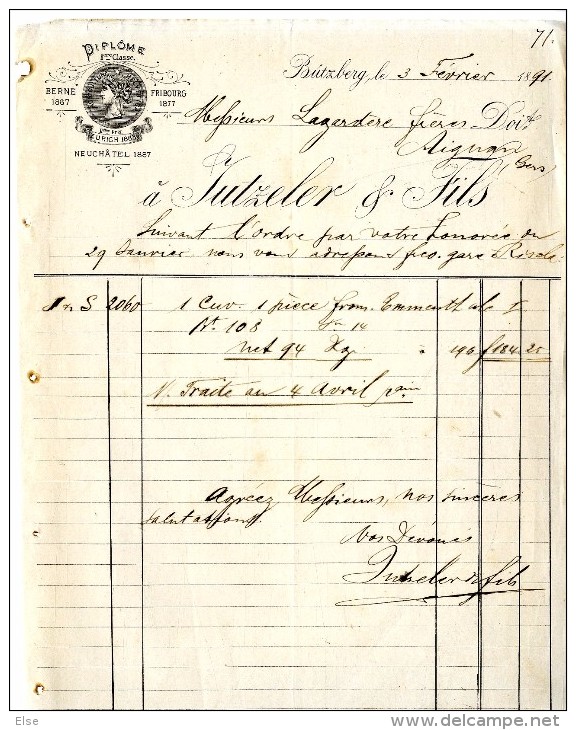 71.
DIPLÔME
1ère Classe.
BERNE
1867
FRIBOURG
1877
ZURICH 1883
NEUCHÂTEL 1887
Bützberg, le 3 Février 1891.
Messieurs Lagardère frères Doit
Aignan
Gers
à Jutzeler & Fils
Suivant l'ordre par votre honorée du
29 Janvier nous vous adressons fco. gare Riscle.
S 2060 1 Cuv. 1 pièce from. Emmenthale I
Bt 108 14
net 94 Kg. 196 f 184.25
N. Traite au 4 Avril pain
Agréez Messieurs, nos sincères
salutations.
Vos Dévoués
Jutzeler & fils
Else
delcampe.net